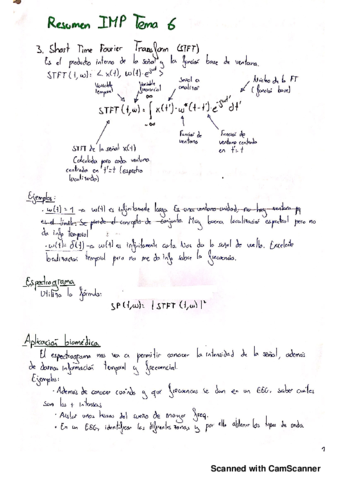 Resumen IMP Tema 6
3. Short Time Fourier Transform (STFT)
Es el producto interno de la señal y la función base de ventana.
STFT (t,ω): < x(t), ω(t)·e^jωt >
Variable temporal
Variable frecuencial
Señal a analizar
Núcleo de la FT
(función base)
STFT (t,ω) = ∫ x(t')·ω*(t'-t)·e^-jωt' dt'
-∞
Función de ventana
Función de ventana centrada en t'=t
STFT de la señal x(t)
Calculada para cada ventana
centrada en t'=t (espectro
localizado)
Ejemplos:
· ω(t)=1 → ω(t) es infinitamente larga. Es una ventana unidad, no hay ventana
al final. Se pierde el concepto de Muy buena localización espectral pero no
da info temporal
· ω(t)=δ(t) → ω(t) es infinitamente corta. Nos da la señal de vuelta. Excelente
localización temporal pero no me da info sobre la frecuencia.
Espectrograma
Utiliza la fórmula:
SP(t,ω): |STFT (t,ω)|²
Aplicación biomédica
El espectrograma nos va a permitir conocer la intensidad de la señal, además
de darnos información temporal y frecuencial.
Ejemplos:
· Además de conocer cuándo y que frecuencias se dan en un EEG, saber cuales
son las + intensas
· Aislar unas horas del sueño de mayor freq.
· En un ECG, identificar las diferentes zonas y, por ello obtener los tipos de onda.
1
Scanned with CamScanner